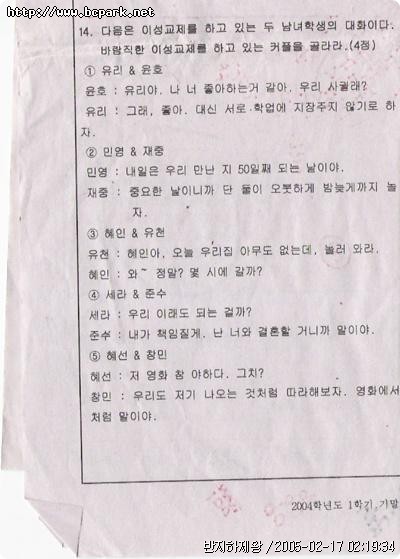 http://www.bcpark.net
14. 다음은 이성교제를 하고 있는 두 남녀학생의 대화이다.
바람직한 이성교제를 하고 있는 커플을 골라라.(4점)
① 유리 & 윤호
윤호 : 유리야. 나 너 좋아하는거 같아. 우리 사귈래?
유리 : 그래, 좋아. 대신 서로 학업에 지장주지 않기로 하
자.
② 민영 & 재중
민영 : 내일은 우리 만난 지 50일째 되는 날이야.
재중 : 중요한 날이니까 단 둘이 오붓하게 밤늦게까지 놀
자.
③ 혜인 & 유천
유천 : 혜인아, 오늘 우리집 아무도 없는데, 놀러 와라.
혜인 : 와~ 정말? 몇 시에 갈까?
④ 세라 & 준수
세라 : 우리 이래도 되는 걸까?
준수 : 내가 책임질게. 난 너와 결혼할 거니까 말이야.
⑤ 혜선 & 창민
혜선 : 저 영화 참 야하다. 그치?
창민 : 우리도 저기 나오는 것처럼 따라해보자. 영화에서
처럼 말이야.
2004학년도 1학기 기말
반지하제왕 / 2005-02-17 02:19:34